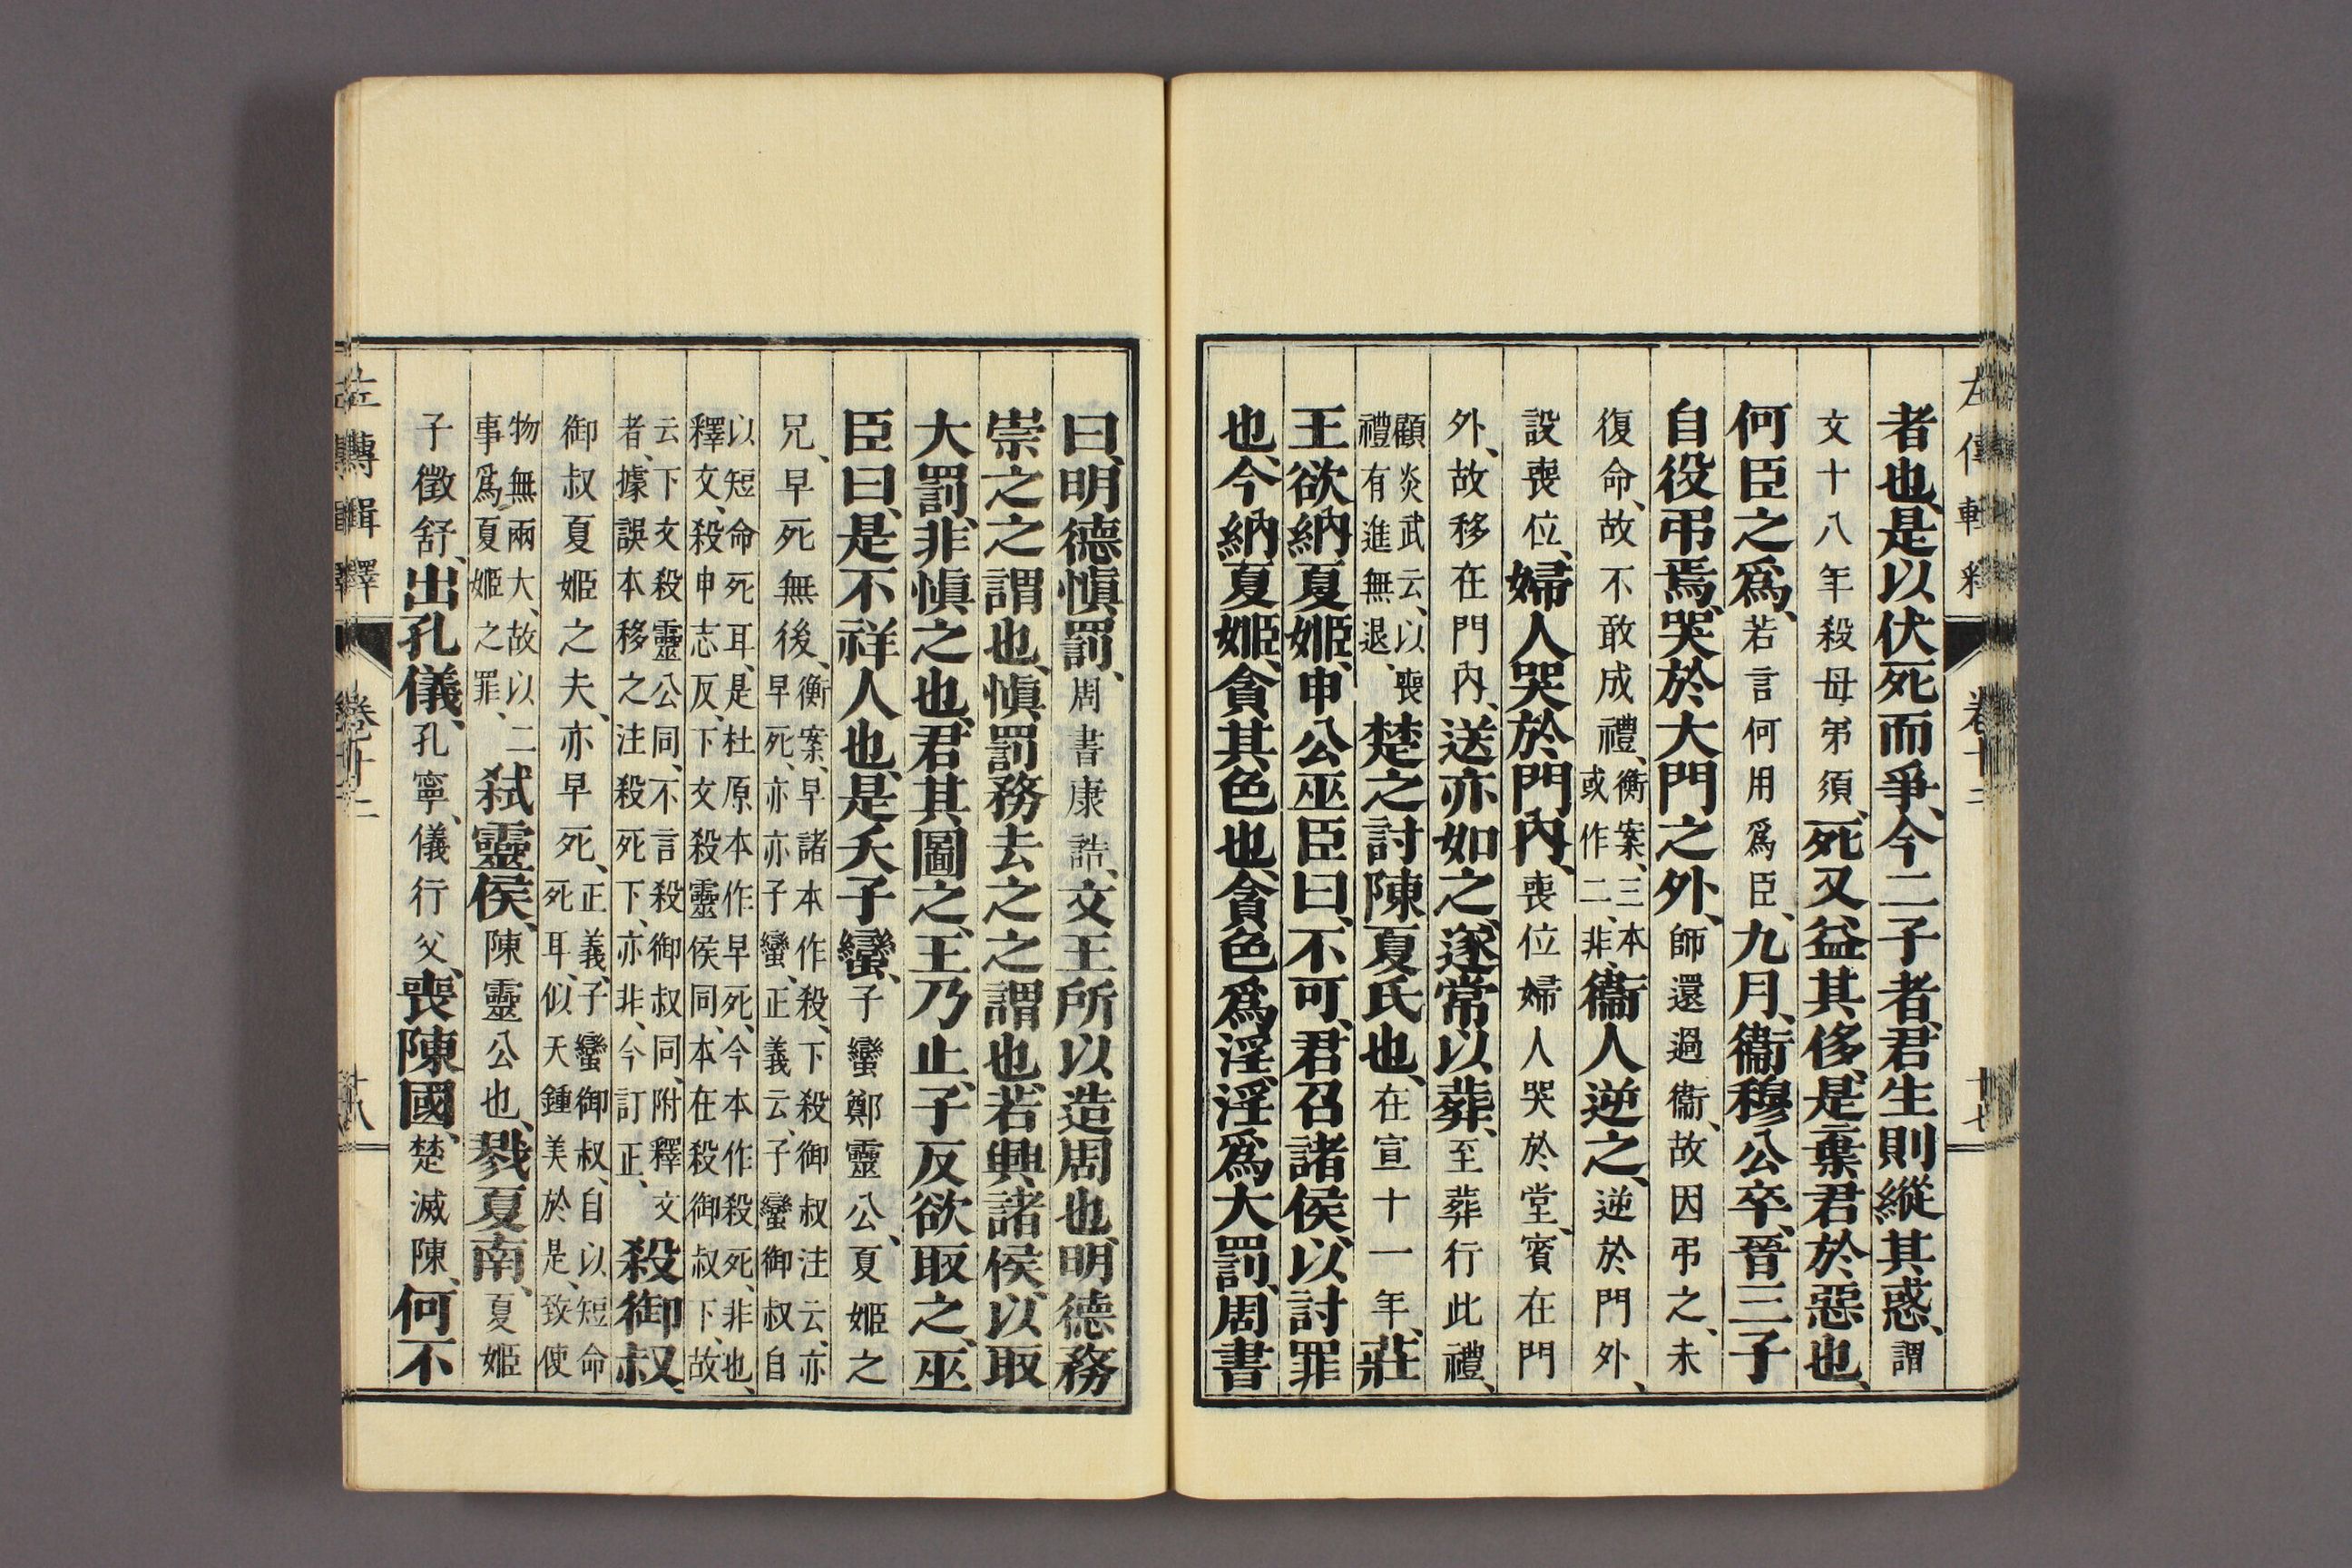 左傳輯釋 卷十二 十七
者也、是以伏死而爭、今二子者、君生則縱其惑、謂
文十八年殺母弟須、死又益其侈、是棄君於惡也、
何臣之爲、若言何用爲臣、九月、衞穆公卒、晉三子
自役弔焉、哭於大門之外、師還過衞、故因弔之、未
復命、故不敢成禮、衡案、三本或作二、非、衞人逆之、逆於門外、
設喪位、婦人哭於門內、喪位婦人哭於堂、賓在門
外、故移在門內、送亦如之、遂常以葬、至葬行此禮、
顧炎武云、以喪禮有進無退、楚之討陳夏氏也、在宣十一年、莊
王欲納夏姬、申公巫臣曰、不可、君召諸侯、以討罪
也、今納夏姬、貪其色也、貪色爲淫、淫爲大罰、周書
曰、明德愼罰、周書康誥、文王所以造周也、明德務
崇之之謂也、愼罰務去之之謂也、若興諸侯、以取
大罰、非愼之也、君其圖之、王乃止、子反欲取之、巫
臣曰、是不祥人也、是夭子蠻、子蠻鄭靈公、夏姬之
兄、早死無後、衡案、早諸本作殺、下殺御叔注云、亦早死、亦亦子蠻、正義云、子蠻御叔自
以短命死耳、是杜原本作早死、今本作殺死、非也、釋文、殺申志反、下文殺靈侯同、本在殺御叔下、故
云下文殺靈公同、不言殺御叔同、附釋文者、據誤本移之注殺死下、亦非、今訂正、殺御叔、
御叔夏姬之夫、亦早死、正義、子蠻御叔、自以短命死耳、似天鍾美於是、致使
物無兩大、故以二事爲夏姬之罪、弑靈侯、陳靈公也、戮夏南、夏姬
子徵舒、出孔儀、孔寧、儀行父、喪陳國、楚滅陳、何不
左傳輯釋 卷十二 十八